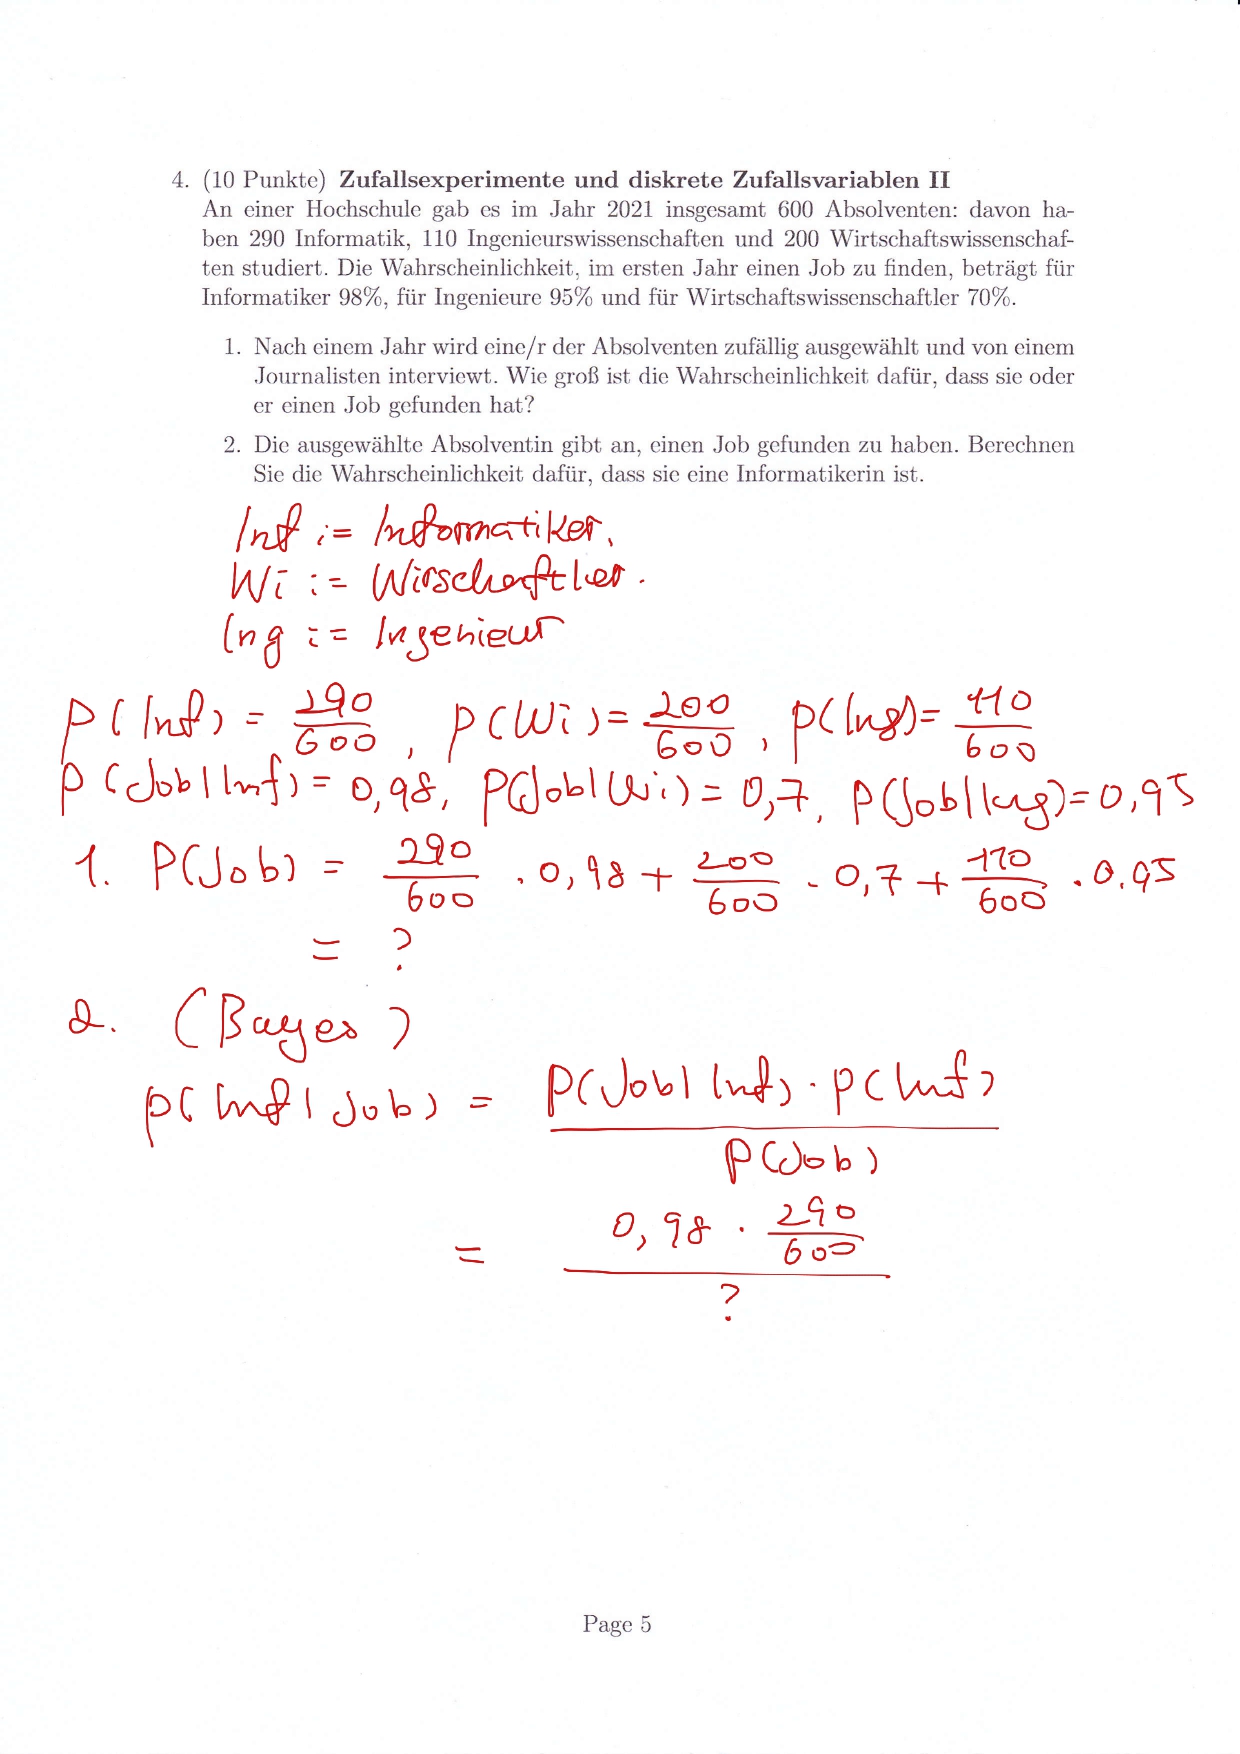 4. (10 Punkte) Zufallsexperimente und diskrete Zufallsvariablen II
An einer Hochschule gab es im Jahr 2021 insgesamt 600 Absolventen: davon ha-
ben 290 Informatik, 110 Ingenieurswissenschaften und 200 Wirtschaftswissenschaf-
ten studiert. Die Wahrscheinlichkeit, im ersten Jahr einen Job zu finden, beträgt für
Informatiker 98%, für Ingenieure 95% und für Wirtschaftswissenschaftler 70%.
1. Nach einem Jahr wird eine/r der Absolventen zufällig ausgewählt und von einem
Journalisten interviewt. Wie groß ist die Wahrscheinlichkeit dafür, dass sie oder
er einen Job gefunden hat?
2. Die ausgewählte Absolventin gibt an, einen Job gefunden zu haben. Berechnen
Sie die Wahrscheinlichkeit dafür, dass sie eine Informatikerin ist.
Inf := Informatiker.
Wi := Wirschaftler.
Ing := Ingenieur
P(Inf) = 290/600, P(Wi) = 200/600, P(Ing) = 110/600
P(Job|Inf) = 0,98, P(Job|Wi) = 0,7, P(Job|Ing) = 0,95
1. P(Job) = 290/600 · 0,98 + 200/600 · 0,7 + 110/600 · 0.95
= ?
2. (Bayes)
P(Inf|Job) = P(Job|Inf) · P(Inf) / P(Job)
= 0,98 · 290/600 / ?
Page 5